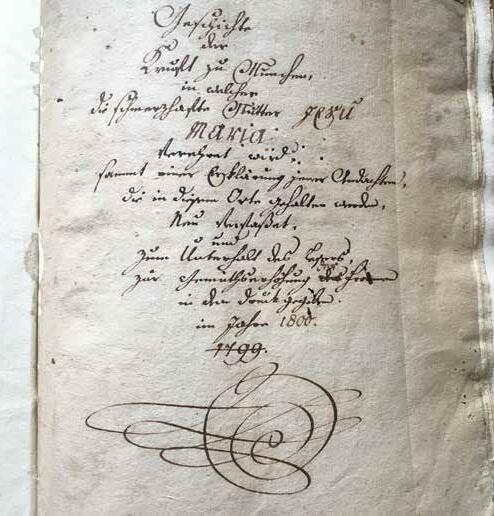 Geschichte
der
Kruft zu München,
in welcher
die schmerzhafte Mutter Jesu
Maria
verehret wird;
sammt einer Erklärung jener Andachten,
die in diesem Orte gehalten werden,
Neu verfaßet,
und
zum Unterhalt des Lesers,
zur Gemüthserhöhung des
in den Druck gegeben.
im Jahre 1800.
1799.